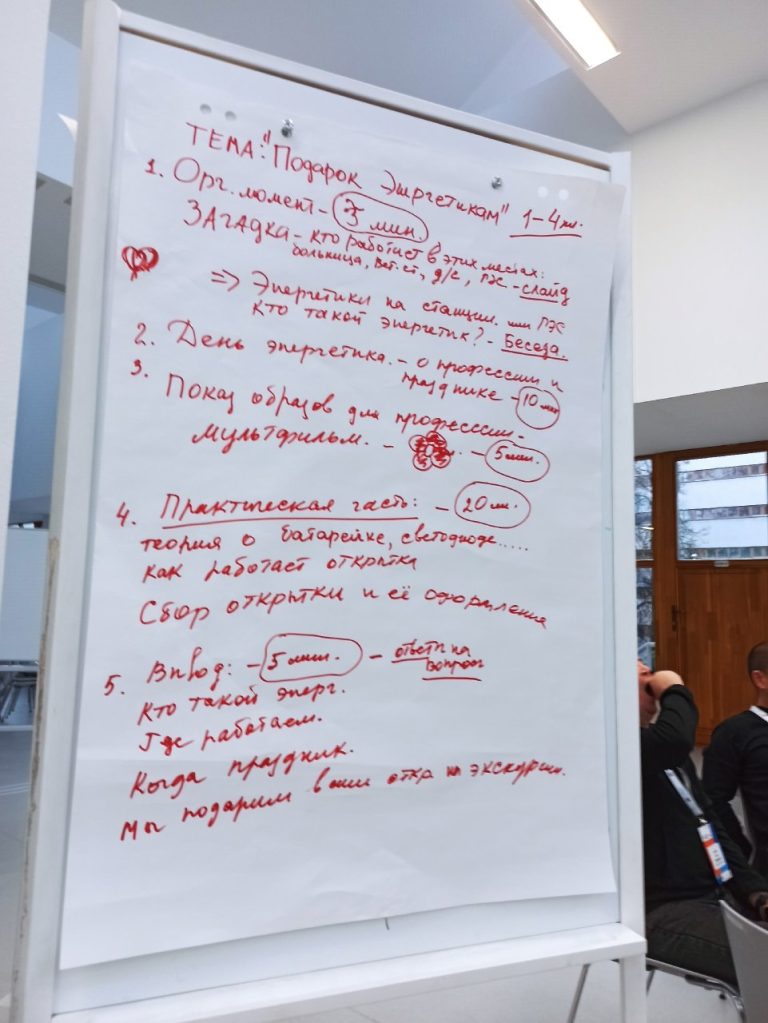 ТЕМА: "Подарок Энергетикам" 1-4 кл.
1. Орг. момент - 5 мин
ЗАГАДКА - кто работает в этих местах:
больница, вет. ст, д/с, ГЭС - слайд
=> Энергетики на станции. или ГЭС
Кто такой энергетик? - Беседа.
2. День энергетика. - о профессии и
празднике - 10 мин
3.
Показ образов для профессии -
мультфильм. - - 5 мин.
4. Практическая часть: - 20 м.
теория о батарейке, светодиоде.....
как работает открытка
Сбор открытки и её оформления
5. Вывод: - 5 мин. - ответы на
вопросы
Кто такой энерг.
Где работаем.
Когда праздник.
Мы подарим ваши откр на экскурсии.